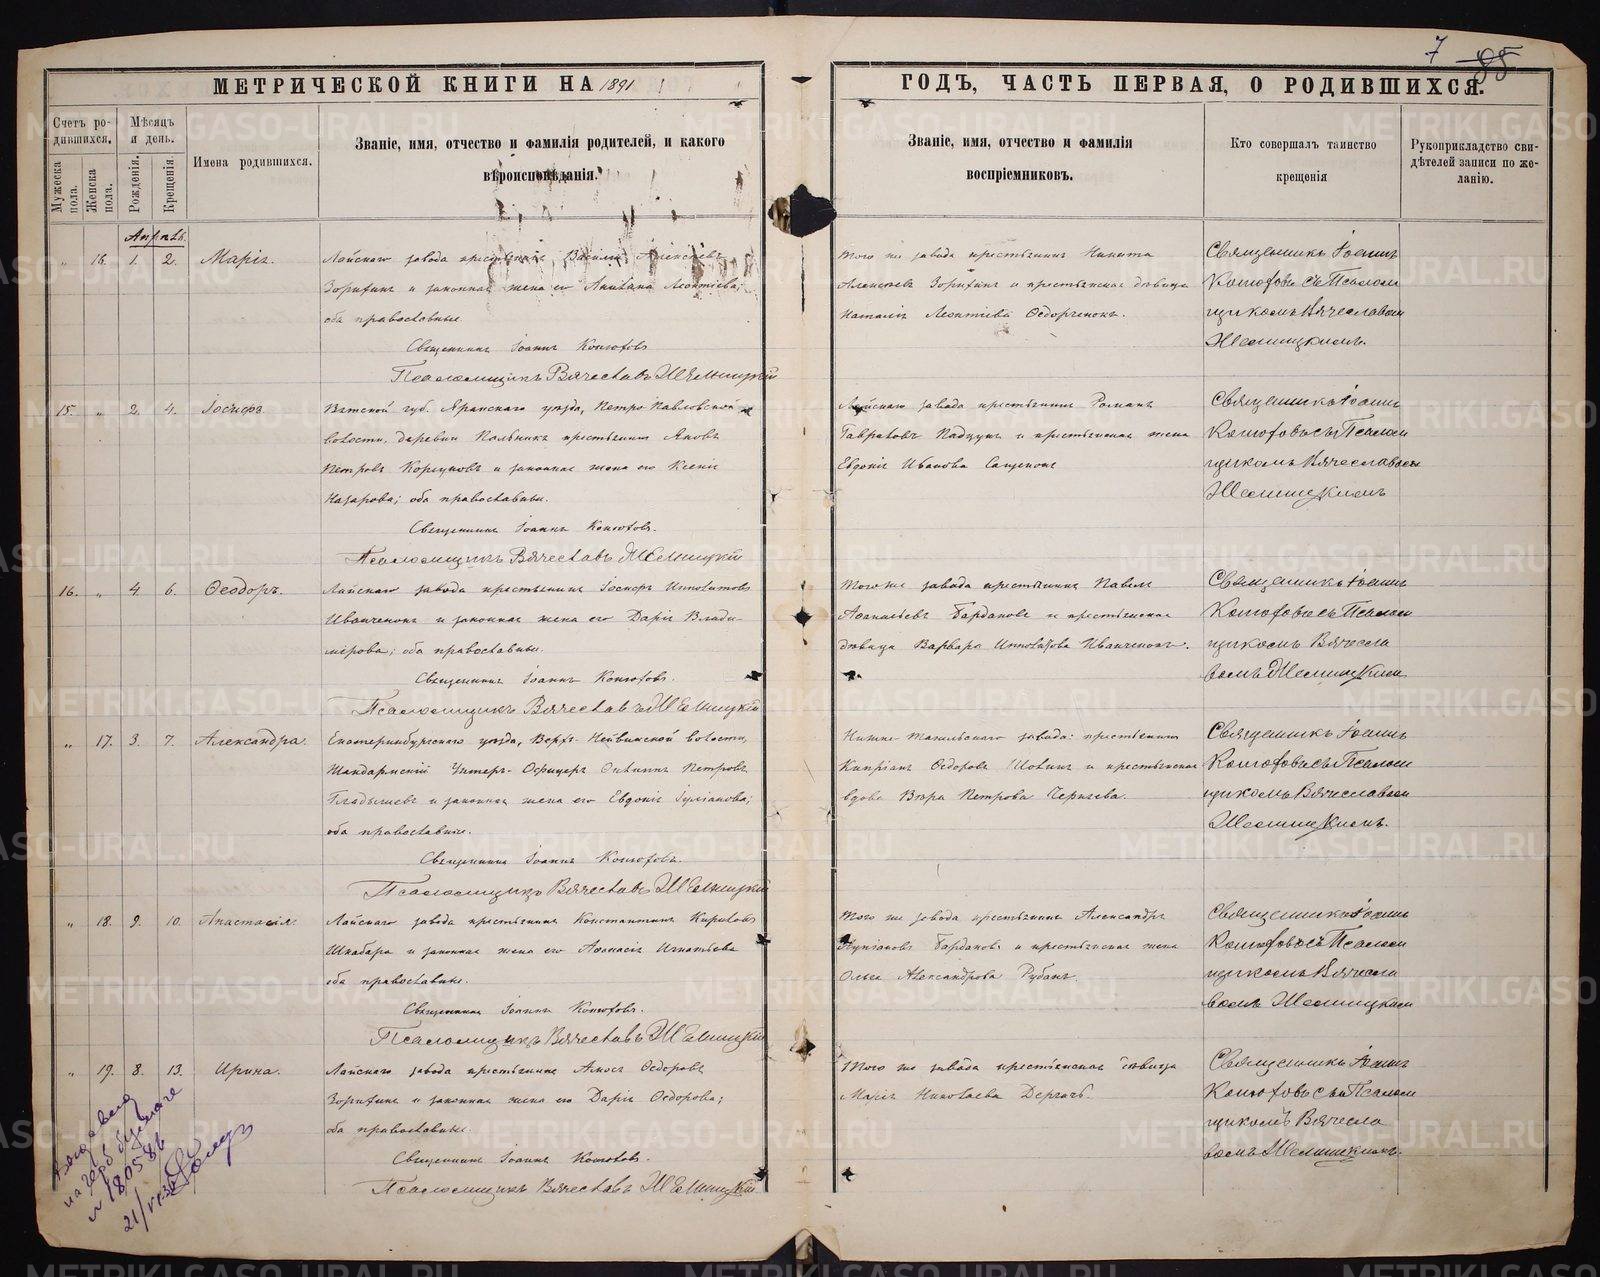 7 85
МЕТРИЧЕСКОЙ КНИГИ НА 1891
ГОДЪ, ЧАСТЬ ПЕРВАЯ, О РОДИВШИХСЯ.
Счетъ ро-
дившихся.
Мужеска
пола.
Женска
пола.
Мѣсяцъ
и день.
Рожденія.
Крещенія.
Имена родившихся.
Званіе, имя, отчество и фамилія родителей, и какого
вѣроисповѣданія.
Званіе, имя, отчество и фамилія
воспріемниковъ.
Кто совершалъ таинство
крещенія
Рукоприкладство сви-
дѣтелей записи по же-
ланію.
Апрѣль.
„ 16. 1. 2. Марія.
Лайскаго завода крестьянинъ Василій Алексѣевъ
Зорихинъ и законная жена его Леонтіева;
оба православные.
Священникъ Іоаннъ Конюховъ
Псаломщикъ Вячеславъ Желницкій
Того же завода крестьянинъ Никита
Алексѣевъ Зорихинъ и крестьянская дѣвица
Наталія Леонтіева Ѳедорченокъ.
Священникъ Іоаннъ
Конюховъ съ Псалом
щикомъ Вячеславом
Желницкимъ.
15. „ 2. 4. Іосифъ.
Вятской губ. Яранскаго уѣзда, Петро-Павловской
волости, деревни крестьянинъ Яковъ
Петровъ Коршуновъ и законная жена его Ксенія
Назарова; оба православные.
Священникъ Іоаннъ Конюховъ.
Псаломщикъ Вячеславъ Желницкій
Лайскаго завода крестьянинъ Романъ
Гавриловъ и крестьянская жена
Евдокія Иванова
Священникъ Іоаннъ
Конюховъ съ Псалом
щикомъ Вячеславомъ
Желницкимъ
16. „ 4. 6. Ѳеодоръ.
Лайскаго завода крестьянинъ Іосифъ Ипполитовъ
Иванченокъ и законная жена его Дарія Влади-
мірова; оба православные.
Священникъ Іоаннъ Конюховъ.
Псаломщикъ Вячеславъ Желницкій
Того же завода крестьянинъ Павелъ
Аѳанасьевъ Бардаковъ и крестьянская
дѣвица Варвара Ипполитова Иванченокъ.
Священникъ Іоаннъ
Конюховъ съ Псалом
щикомъ Вячесла
вомъ Желницким
„ 17. 3. 7. Александра.
Екатеринбургскаго уѣзда, Верхъ-Нейвинской волости,
Жандармскій Унтеръ-Офицеръ Петровъ
Гладышевъ и законная жена его Евдокія Іуліанова;
оба православные.
Священникъ Іоаннъ Конюховъ.
Псаломщикъ Вячеславъ Желницкій
Нижне-Тагильскаго завода: крестьянинъ
Кипріанъ Ѳедоровъ и крестьянская
вдова Вѣра Петрова
Священникъ Іоаннъ
Конюховъ съ Псалом
щикомъ Вячеславом
Желницкимъ.
„ 18. 9. 10. Анастасія.
Лайскаго завода крестьянинъ Константинъ Кириловъ
Шкабара и законная жена его Аѳанасія Игнатьева
оба православные.
Священникъ Іоаннъ Конюховъ.
Псаломщикъ Вячеславъ Желницкій
Того же завода крестьянинъ Александръ
Бардаковъ и крестьянская жена
Ольга Александрова Рубанъ.
Священникъ Іоаннъ
Конюховъ съ Псалом
щикомъ Вячесла
вомъ Желницким
„ 19. 8. 13. Ирина.
Лайскаго завода крестьянинъ Амосъ Ѳедоровъ
Зорихинъ и законная жена его Дарія Ѳедорова;
оба православные.
Священникъ Іоаннъ Конюховъ.
Псаломщикъ Вячеславъ Желницкій
Того же завода крестьянская дѣвица
Марія Николаева Дергачъ.
Священникъ Іоаннъ
Конюховъ съ Псалом
щикомъ Вячесла
вомъ Желницкимъ.
на герб бумаге
№ 180586
METRIKI.GASO-URAL.RU